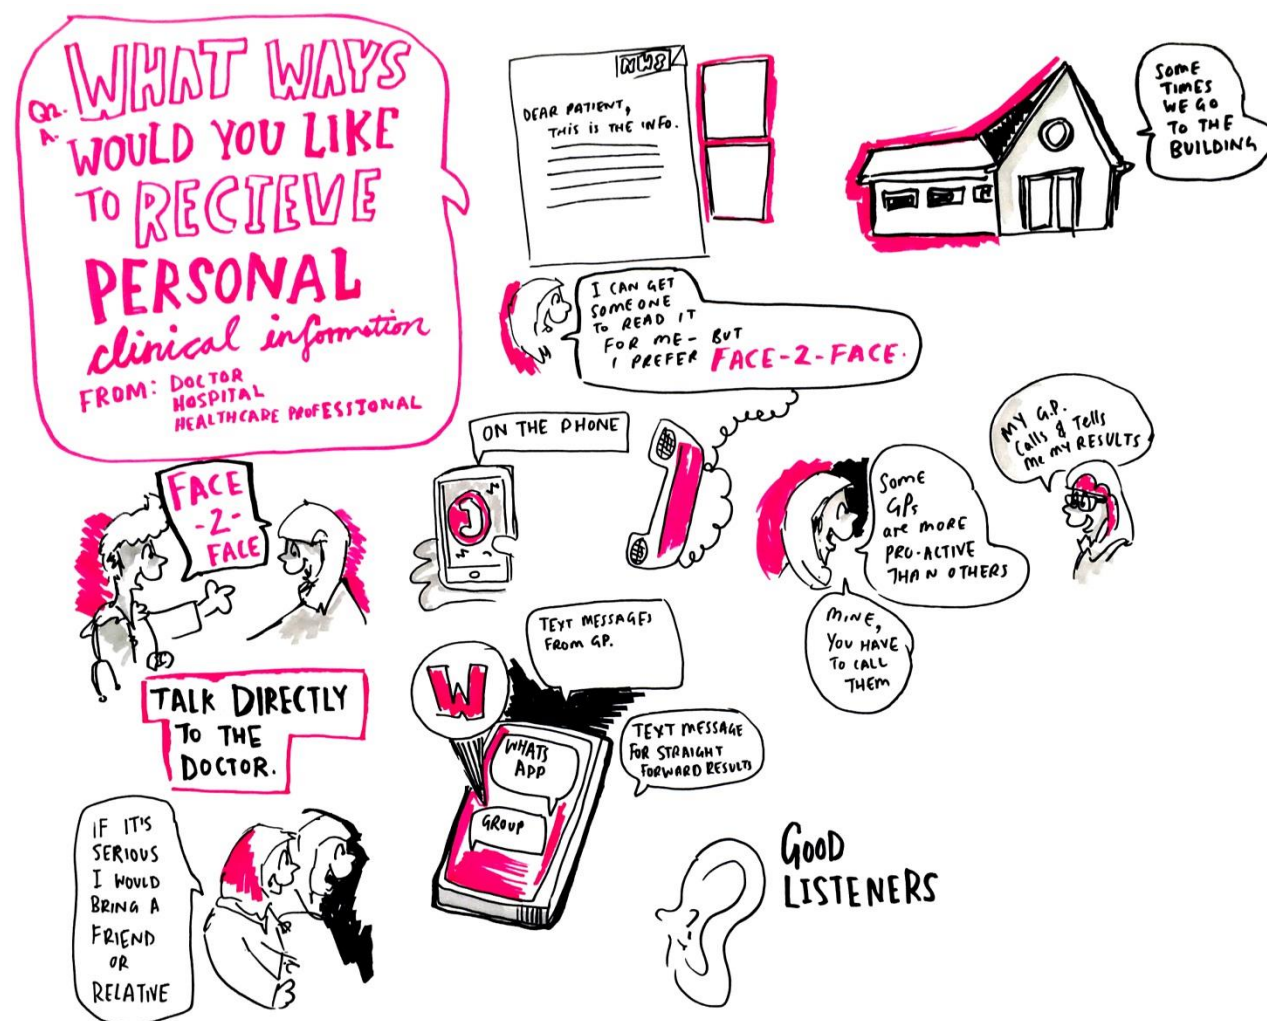 Q2.
A.
WHAT WAYS
WOULD YOU LIKE
TO RECIEVE
PERSONAL
clinical information
FROM: DOCTOR
HOSPITAL
HEALTHCARE PROFESSIONAL
NHS
DEAR PATIENT,
THIS IS THE INFO.
SOME
TIMES
WE GO
TO THE
BUILDING
I CAN GET
SOMEONE
TO READ IT
FOR ME - BUT
I PREFER FACE-2-FACE.
FACE
-2-
FACE
ON THE PHONE
SOME
GPs
are MORE
PRO-ACTIVE
THAN OTHERS
MINE,
YOU HAVE
TO CALL
THEM
MY G.P.
Calls & Tells
me my RESULTS
TALK DIRECTLY
TO THE
DOCTOR.
TEXT MESSAGES
FROM GP.
W
WHATS
APP
GROUP
TEXT MESSAGE
FOR STRAIGHT
FORWARD RESULTS
IF IT'S
SERIOUS
I WOULD
BRING A
FRIEND
OR
RELATIVE
GOOD
LISTENERS